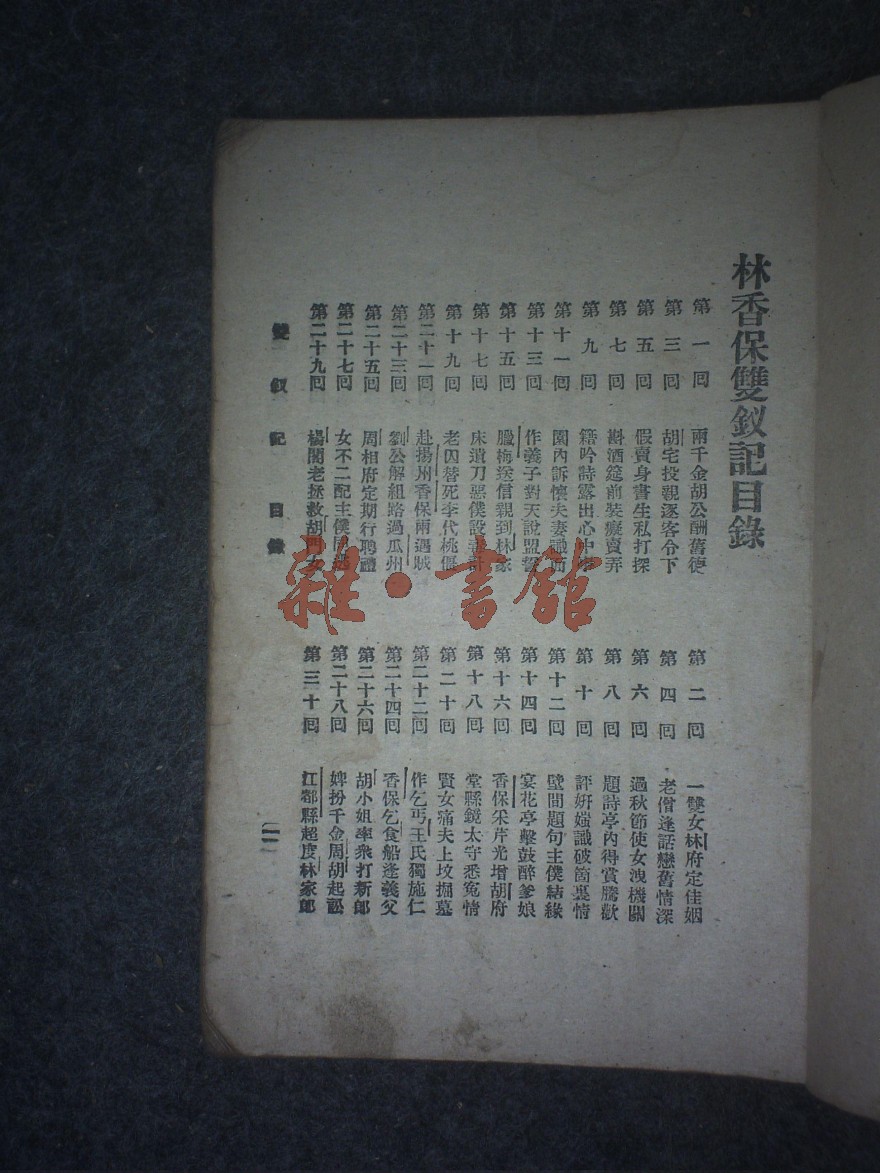 林香保雙釵記目錄
第一回 兩千金胡公酬舊德
第二回 一雙女林府定佳姻
第三回 胡宅投親逐客令下
第四回 老僧逢話戀舊情深
第五回 假賣身書生私打探
第六回 過秋節使女洩機關
第七回 斟酒筵前裝癡賣弄
第八回 題詩亭內得賞騰歡
第九回 籍吟詩露出心中
第十回 評妍媸識破箇裏情
第十一回 園內訴懷夫妻識
第十二回 壁間題句主僕結緣
第十三回 作義子對天說盟誓
第十四回 宴花亭擊鼓醉爹娘
第十五回 臘梅送信親到林家
第十六回 香保采芹光增胡府
第十七回 床遺刀惡僕設
第十八回 堂縣鏡太守悉冤情
第十九回 老囚替死李代桃僵
第二十回 賢女痛夫上墳掘墓
第二十一回 赴揚州香保兩遇賊
第二十二回 作乞丐王氏獨施仁
第二十三回 劉公解組路過瓜州
第二十四回 香保乞食船逢義父
第二十五回 周相府定期行聘禮
第二十六回 胡小姐率眾打新郎
第二十七回 女不二配主僕
第二十八回 婢扮千金周胡起訟
第二十九回 楊閣老拯救胡門女
第三十回 江都縣超度林家郎
雙釵記 目錄
一
雜·書館